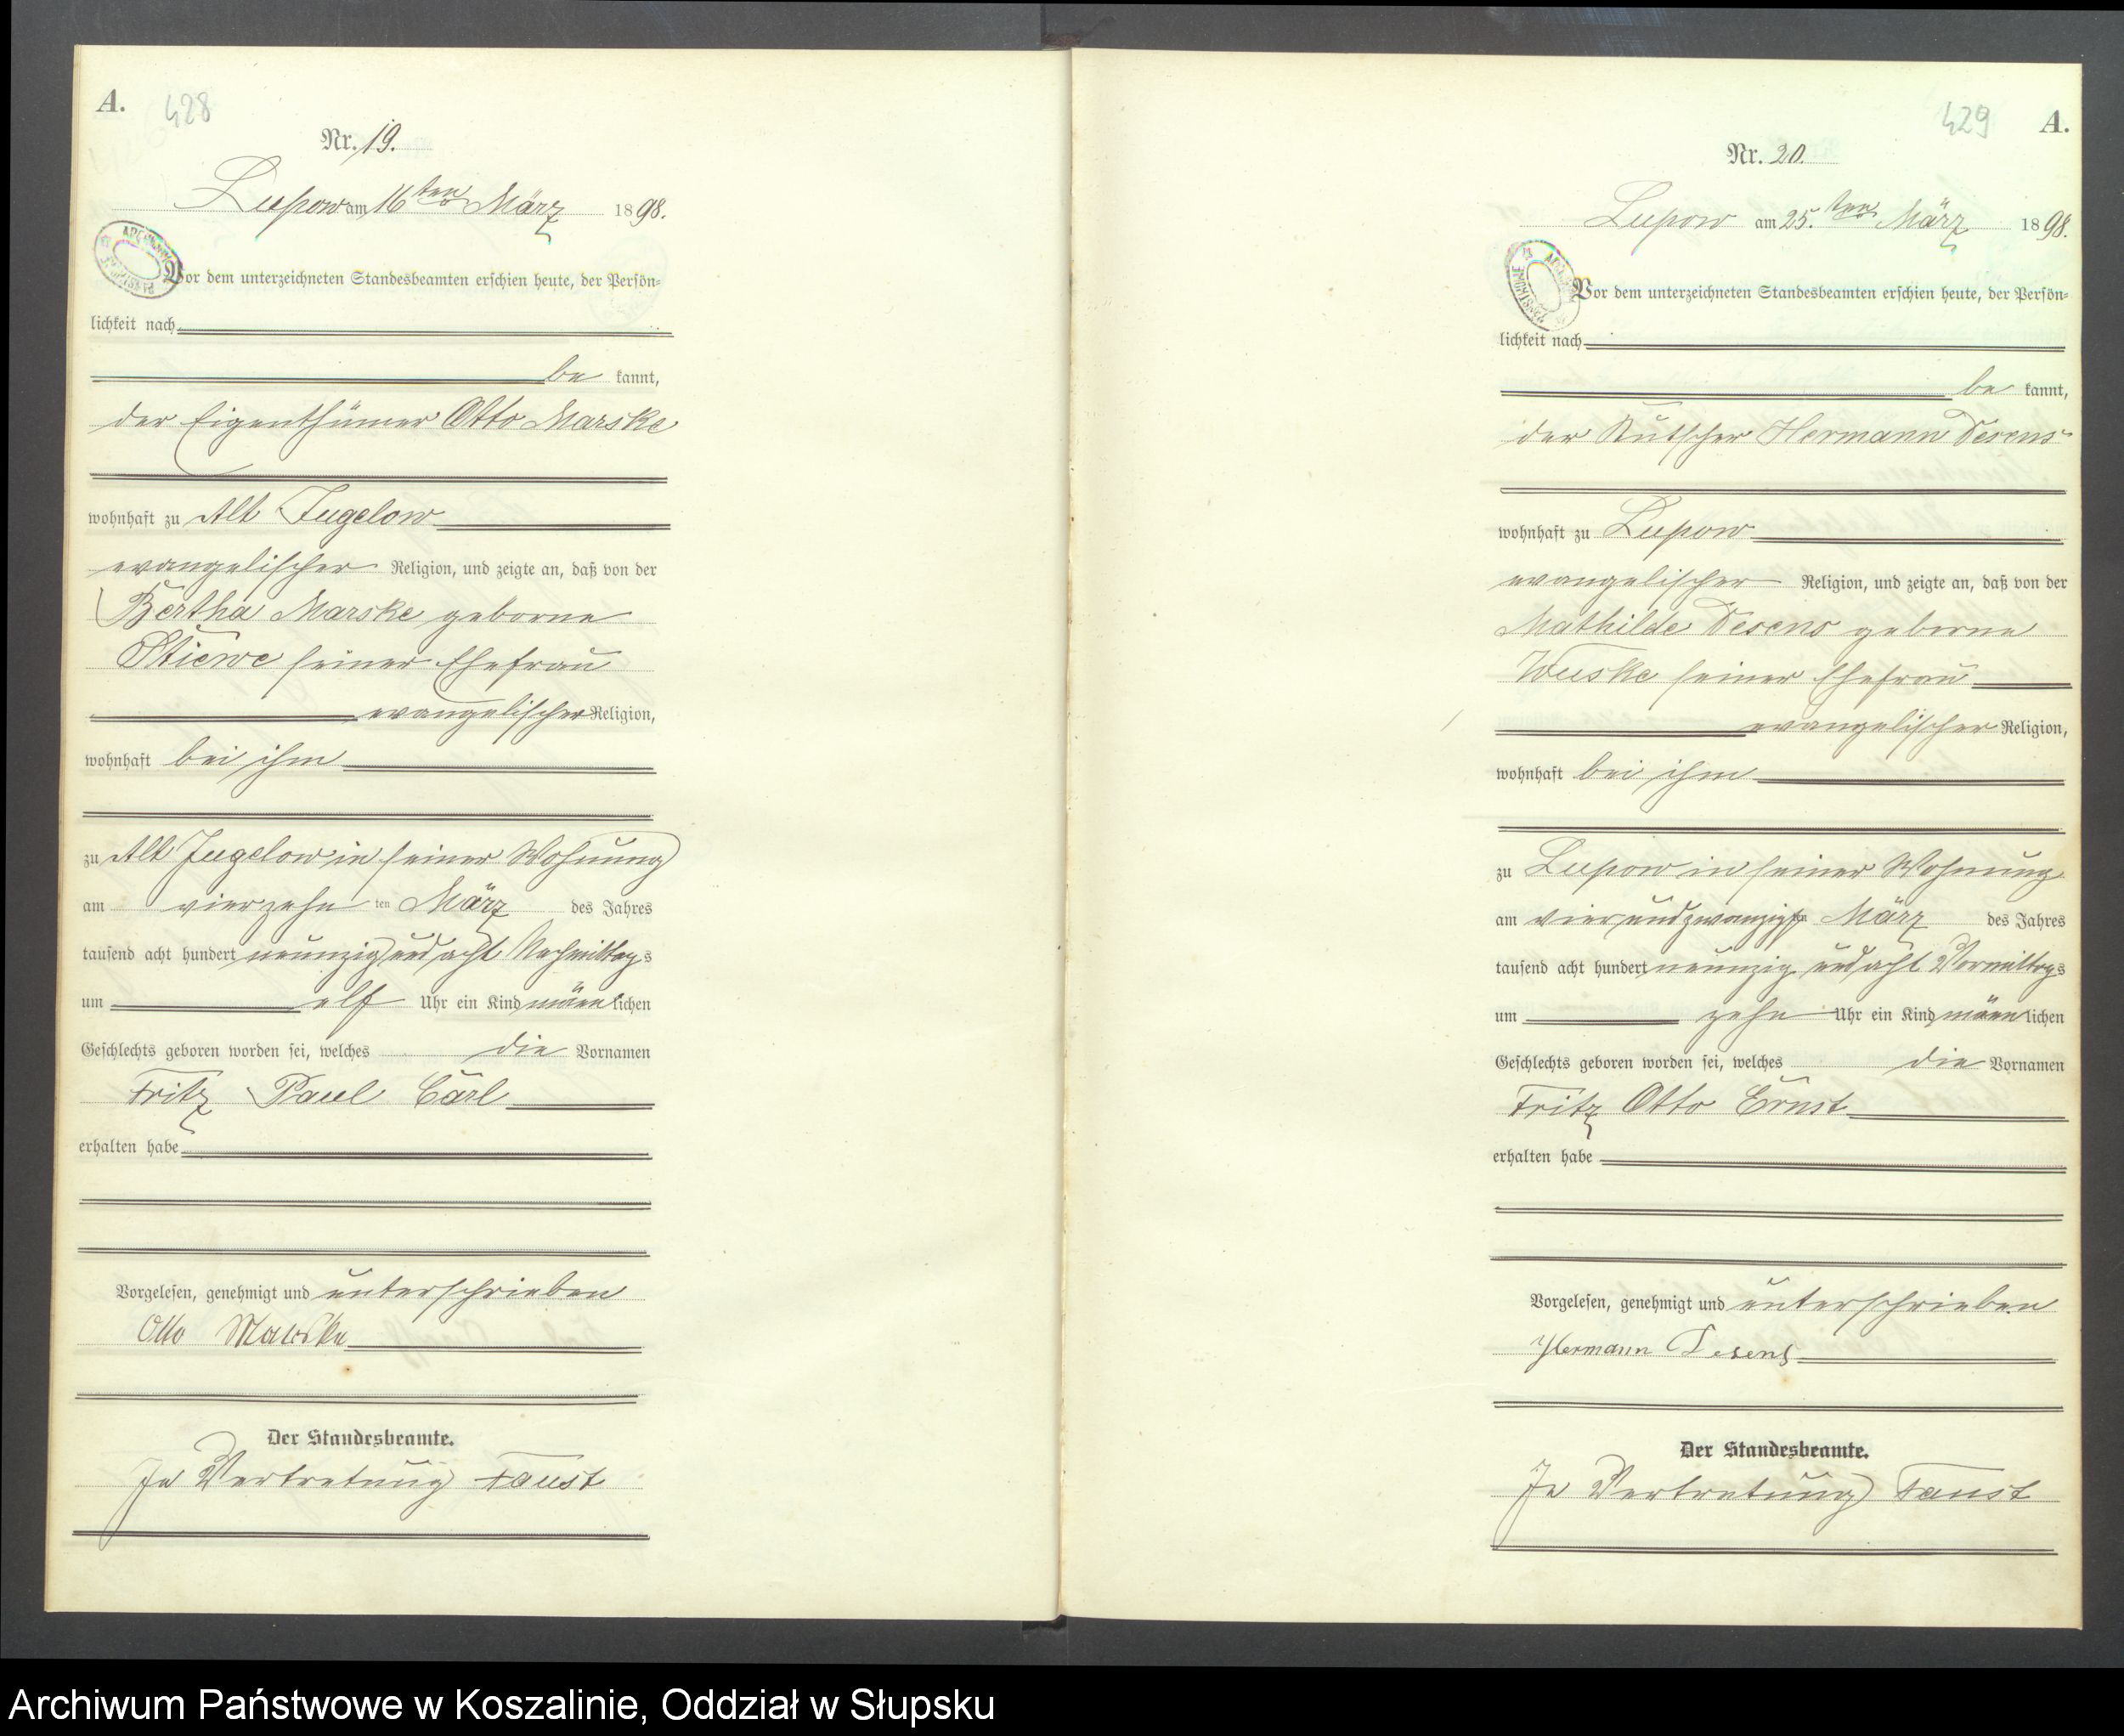 A.
428
Nr. 19.
Lupow am 16ten März 1898.
Vor dem unterzeichneten Standesbeamten erschien heute, der Persön-
lichkeit nach
be kannt,
der Eigenthümer Otto Marske
wohnhaft zu Alt Jugelow
evangelischer Religion, und zeigte an, daß von der
Bertha Marske geborne
Stiewe seiner Ehefrau
evangelischer Religion,
wohnhaft bei ihm
zu Alt Jugelow in seiner Wohnung
am vierzehn ten März des Jahres
tausend acht hundert neunzig und acht Nachmittags
um elf Uhr ein Kind männlichen
Geschlechts geboren worden sei, welches die Vornamen
Fritz Paul Carl
erhalten habe
Vorgelesen, genehmigt und unterschrieben
Otto Marske
Der Standesbeamte.
In Vertretung Faust
429
A.
Nr. 20.
Lupow am 25.ten März 1898.
Vor dem unterzeichneten Standesbeamten erschien heute, der Persön-
lichkeit nach
be kannt,
der Kutscher Hermann Desens
wohnhaft zu Lupow
evangelischer Religion, und zeigte an, daß von der
Mathilde Desens geborne
Wuske seiner Ehefrau
evangelischer Religion,
wohnhaft bei ihm
zu Lupow in seiner Wohnung
am vierundzwanzigsten März des Jahres
tausend acht hundert neunzig und acht Vormittags
um zehn Uhr ein Kind männlichen
Geschlechts geboren worden sei, welches die Vornamen
Fritz Otto Ernst
erhalten habe
Vorgelesen, genehmigt und unterschrieben
Hermann Desens
Der Standesbeamte.
In Vertretung Faust
Archiwum Państwowe w Koszalinie, Oddział w Słupsku